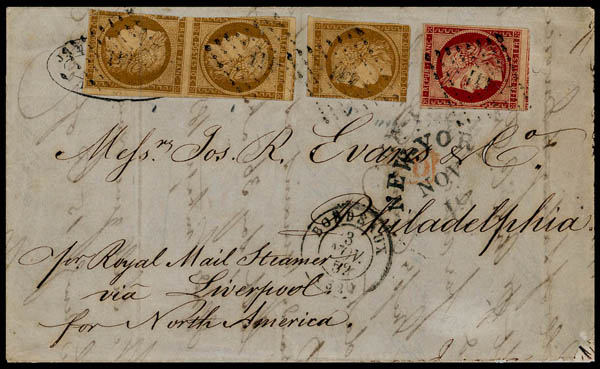 Messrs Jos. R. Evans & Co.
Philadelphia.
per Royal Mail Steamer
via Liverpool
for North America.
NEW YO
NOV
BORDEAUX
3
52